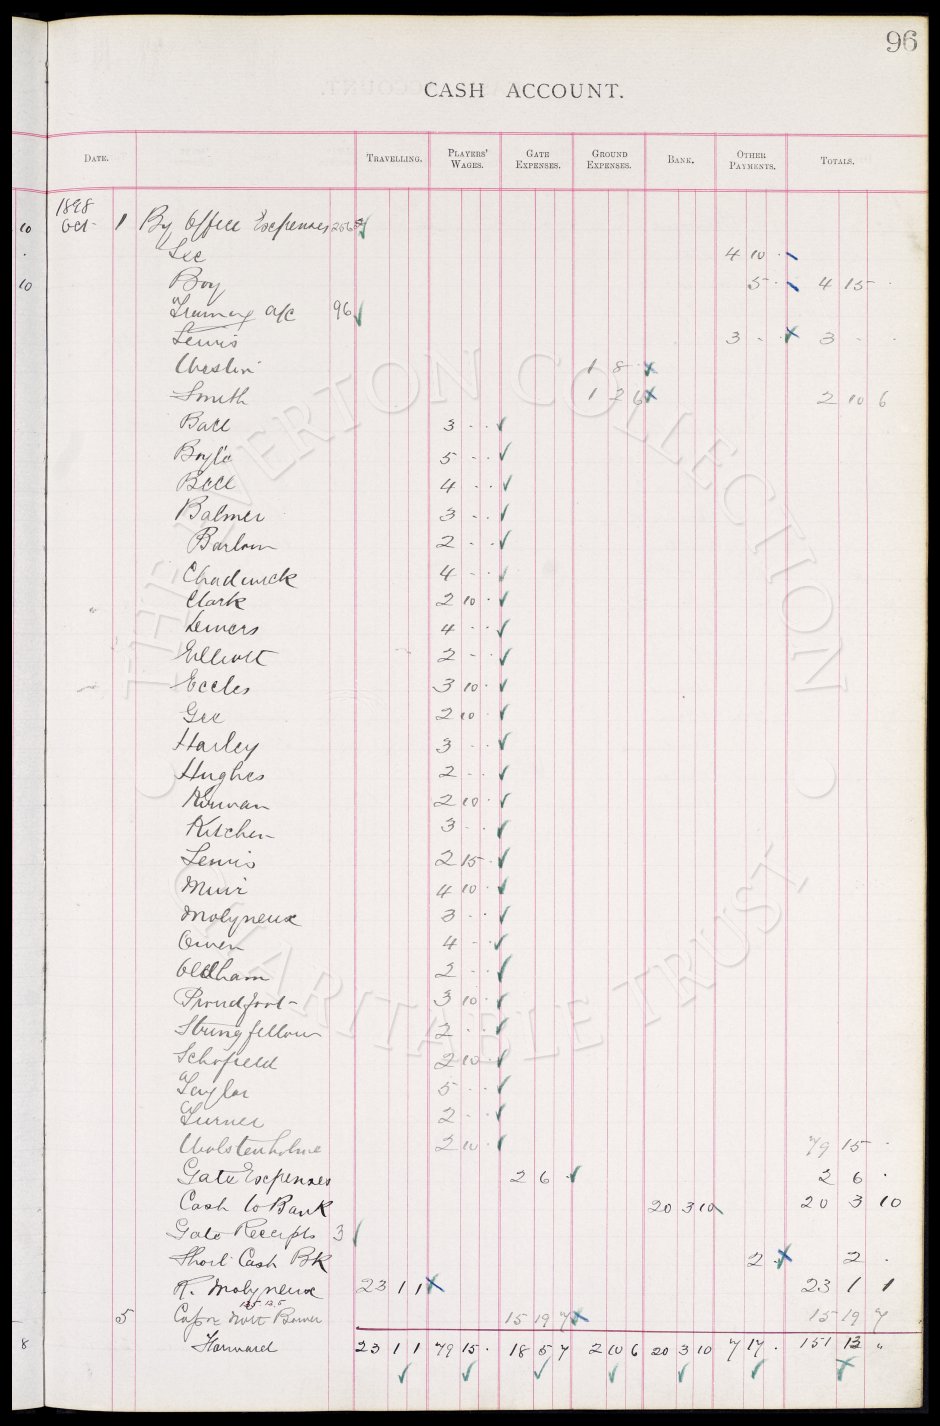 96
CASH ACCOUNT.
DATE. TRAVELLING. PLAYERS' WAGES. GATE EXPENSES. GROUND EXPENSES. BANK. OTHER PAYMENTS. TOTALS.
1898
10 Oct 1 By Office Expenses
Sec 4 10 .
10 Boy 5 . 4 15 .
Training a/c 96
Lewis 3 - . 3 - .
Westin 1 8 .
Smith 1 2 6 2 10 6
Ball 3 . .
Boyle 5 - .
Bell 4 - .
Balmer 3 - .
Barlow 2 . .
Chadwick 4 - .
Clark 2 10 .
Demers 4 . .
Elliott 2 - .
Eccles 3 10 .
Gee 2 10 .
Harley 3 . .
Hughes 2 - .
Kirwan 2 10 .
Kitchen 3 - .
Lewis 2 15 .
Muir 4 10 .
Molyneux 3 - .
Owen 4 - .
Oldham 2 - .
Proudfoot 3 10 .
Stringfellow 2 - .
Schofield 2 10 .
Taylor 5 . .
Turner 2 - .
Wolstenholme 2 10 . 79 15 .
Gate Expenses 2 6 . 2 6 .
Cash to Bank 20 3 10 20 3 10
Gate Receipts 3
Short Cash Bk 2 . 2 .
R. Molyneux 23 1 1 23 1 1
5 Notts 15 19 7 15 19 7
8 Forward 23 1 1 79 15 . 18 5 7 2 10 6 20 3 10 7 17 . 151 13 "
THE EVERTON COLLECTION
CHARITABLE TRUST